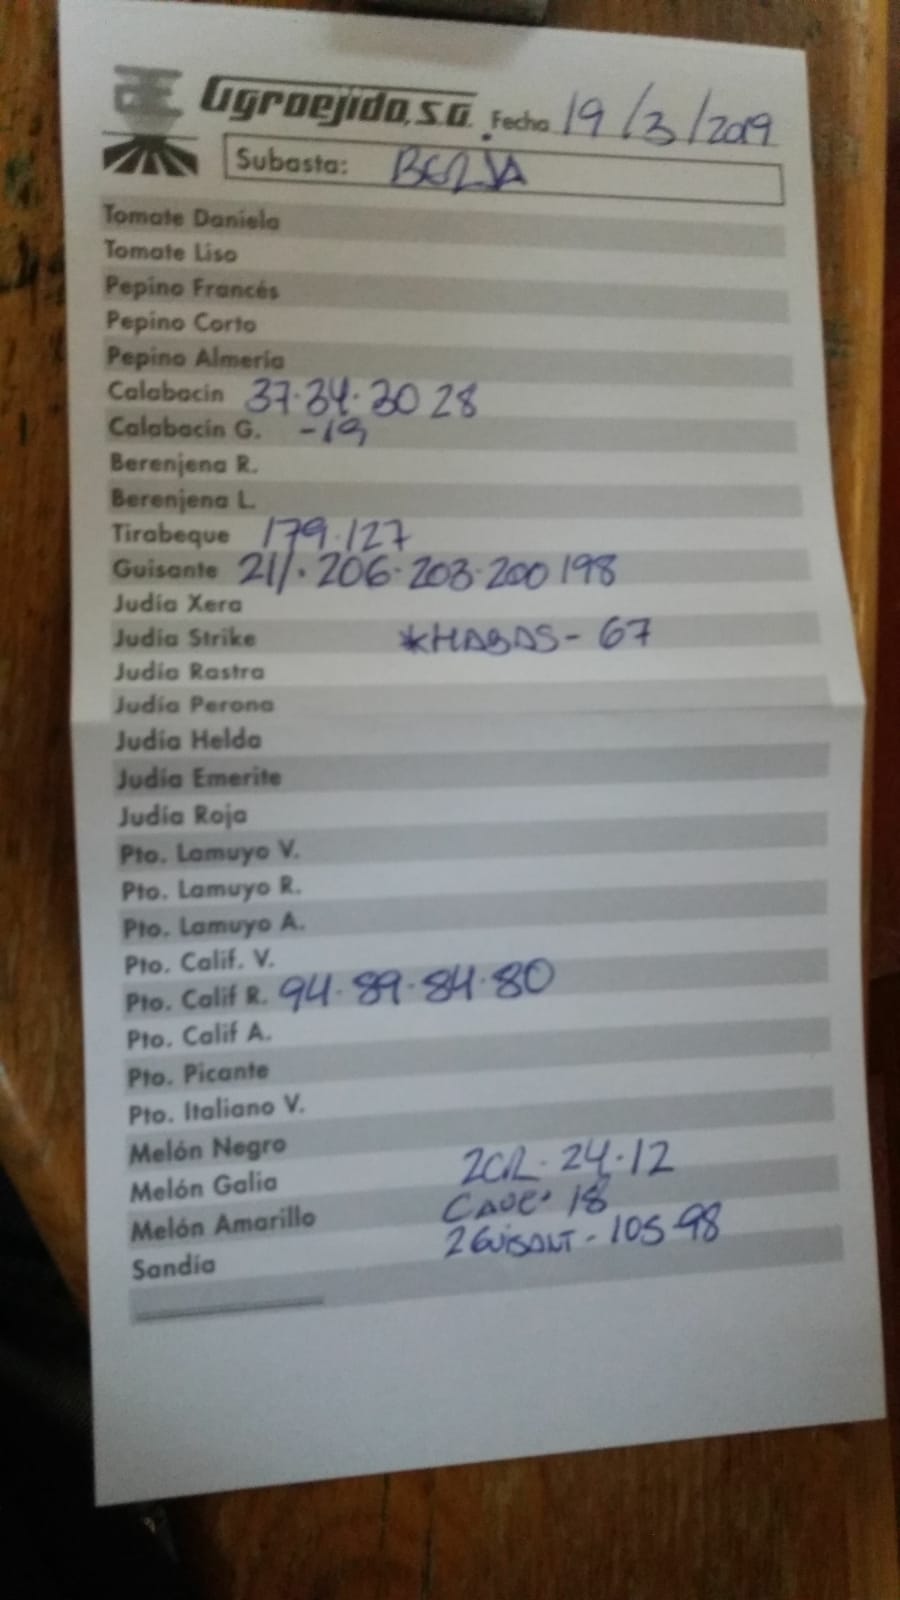 Agroejido, S.A. Fecha 19/3/2019
Subasta: BERJA
Tomate Daniela
Tomate Liso
Pepino Francés
Pepino Corto
Pepino Almería
Calabacin 37·34·30 28
Calabacin G. -19
Berenjena R.
Berenjena L.
Tirabeque 179·127
Guisante 211·206·203·200 198
Judía Xera
Judía Strike *HABAS- 67
Judía Rastra
Judía Perona
Judía Helda
Judía Emerite
Judía Roja
Pto. Lamuyo V.
Pto. Lamuyo R.
Pto. Lamuyo A.
Pto. Calif. V.
Pto. Calif R. 94·89·84·80
Pto. Calif A.
Pto. Picante
Pto. Italiano V.
Melón Negro
Melón Galia 24·12
Melón Amarillo 18
Sandía 2GUISANT- 105-98